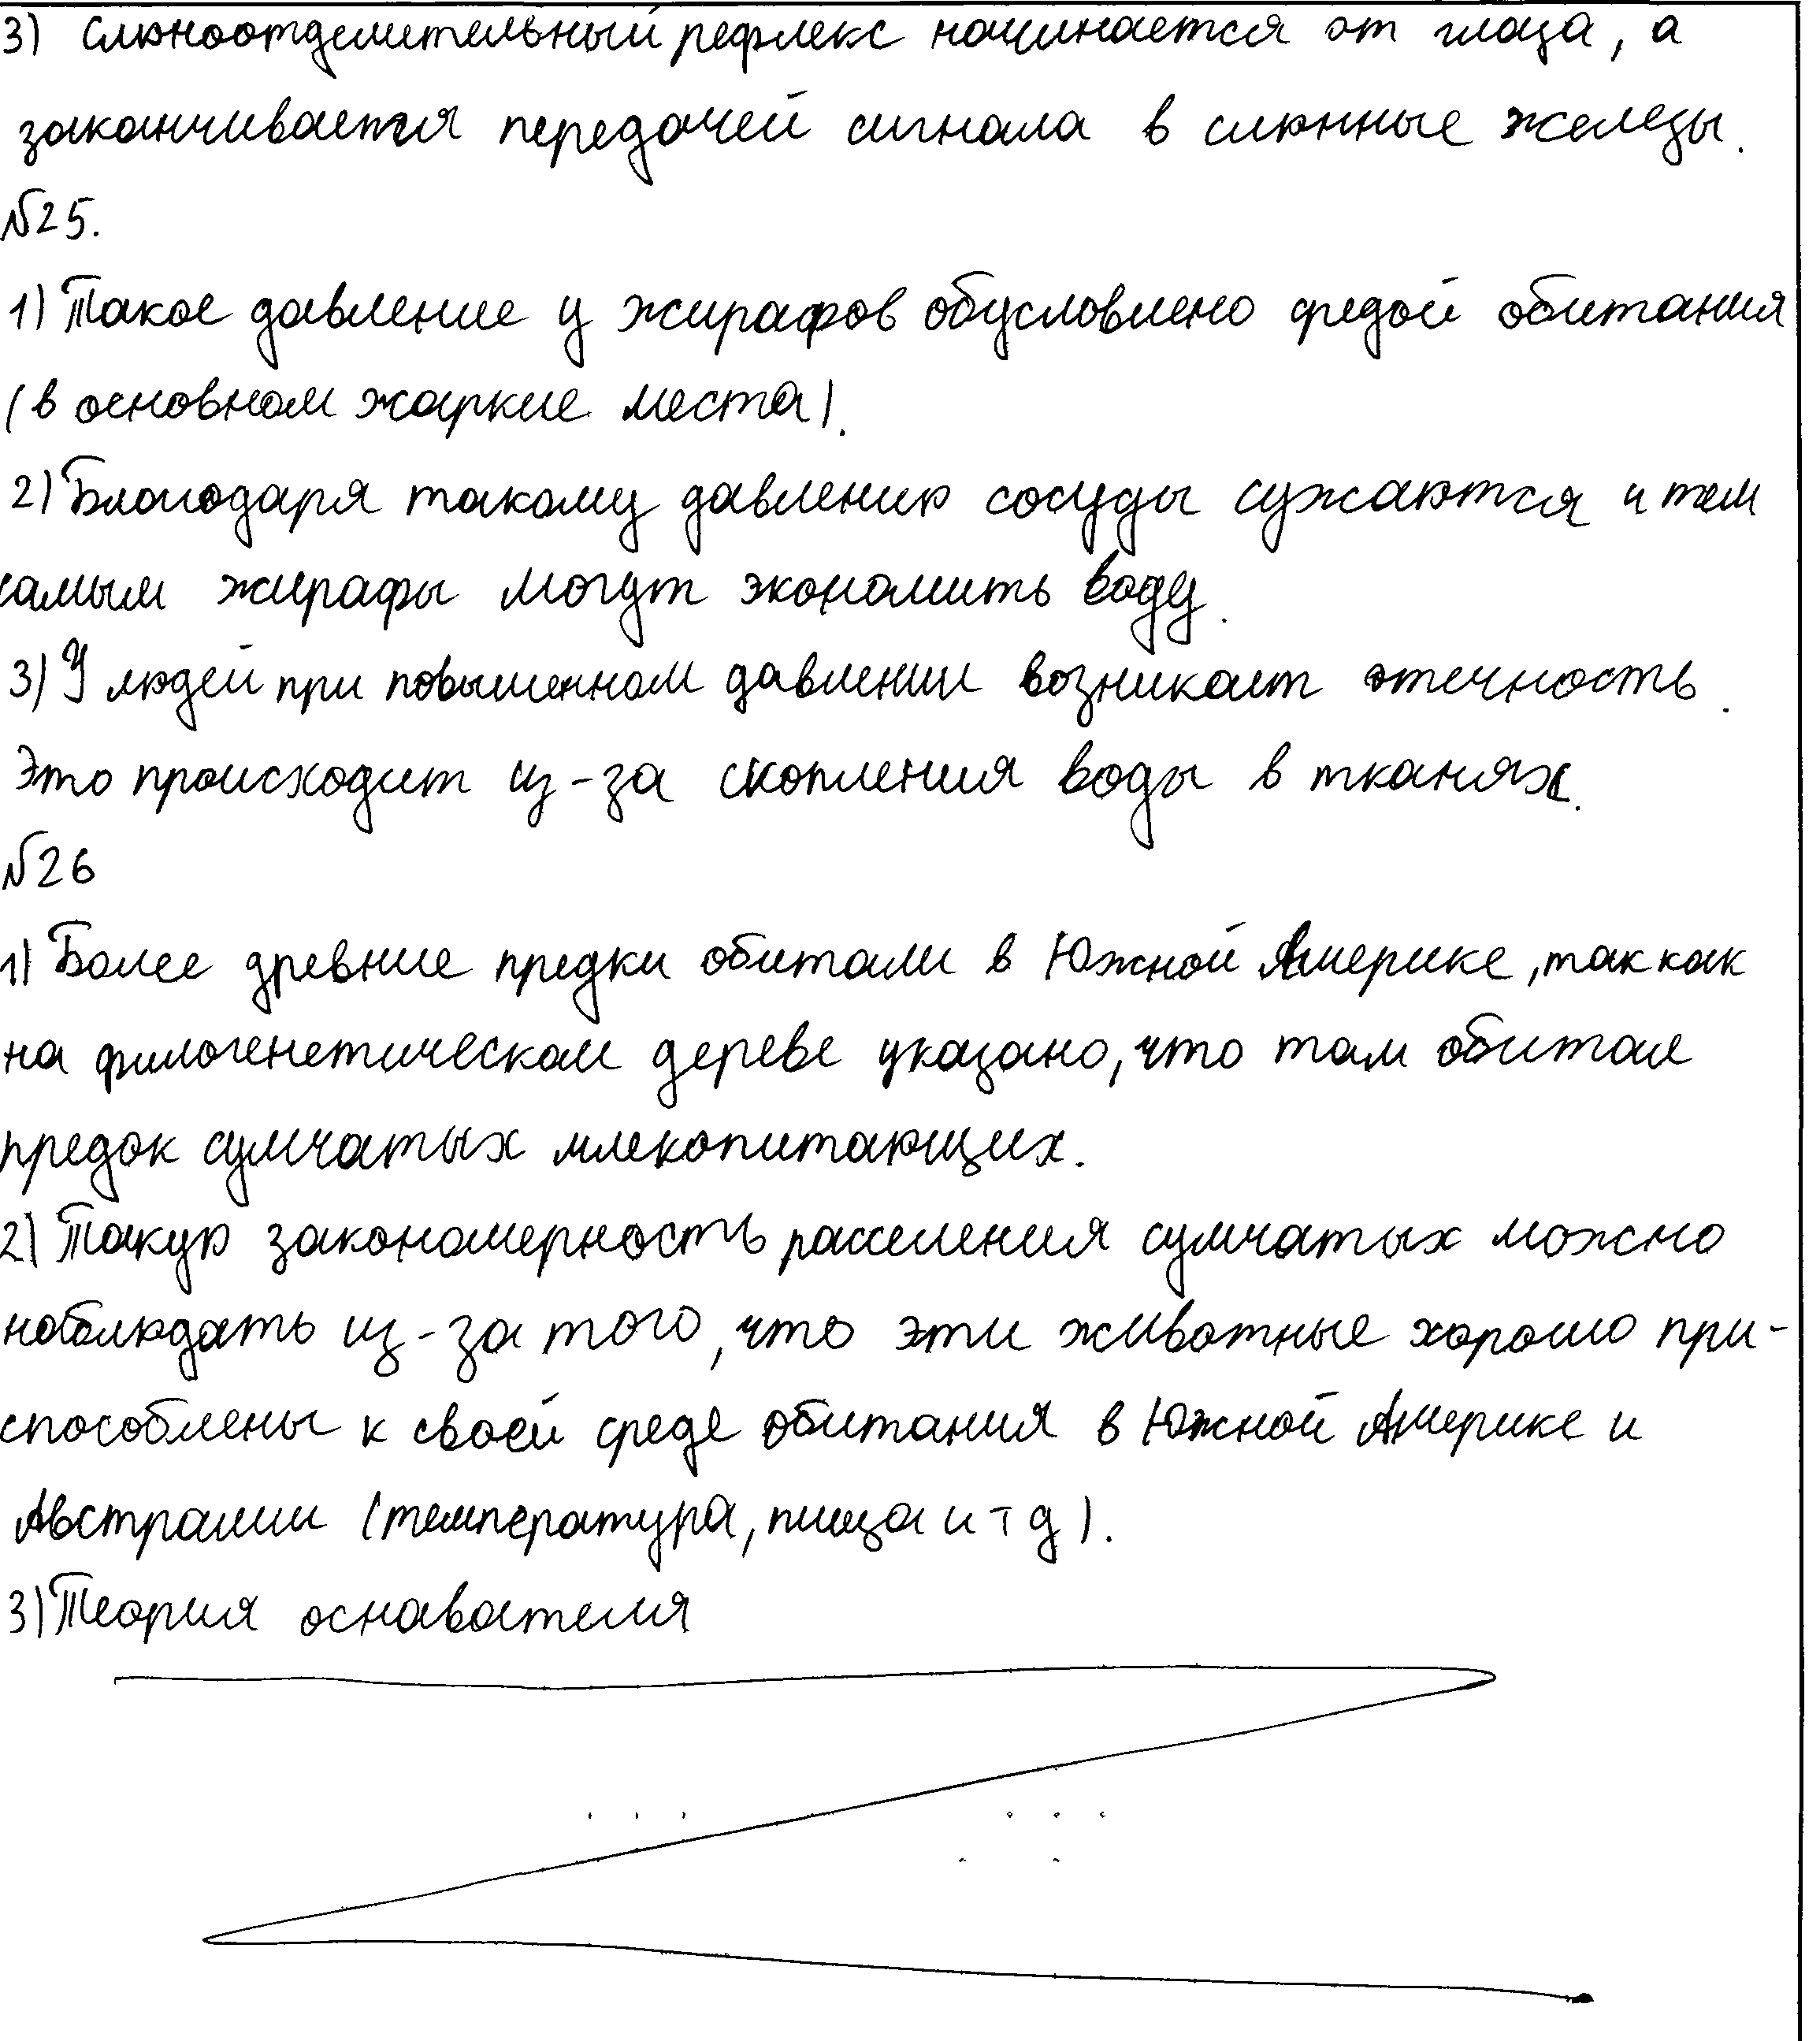 3) Слюноотделительный рефлекс начинается от глаза, а
заканчивается передачей сигнала в слюнные железы.
№25.
1) Такое давление у жирафов обусловлено средой обитания
(в основном жаркие места).
2) Благодаря такому давлению сосуды сужаются и тем
самым жирафы могут экономить воду.
3) У людей при повышенном давлении возникает отечность.
Это происходит из-за скопления воды в тканях.
№26
1) Более древние предки обитали в Южной Америке, так как
на филогенетическом дереве указано, что там обитал
предок сумчатых млекопитающих.
2) Такую закономерность расселения сумчатых можно
наблюдать из-за того, что эти животные хорошо при-
способлены к своей среде обитания в Южной Америке и
Австралии (температура, пища и т д).
3) Теория оснавателя